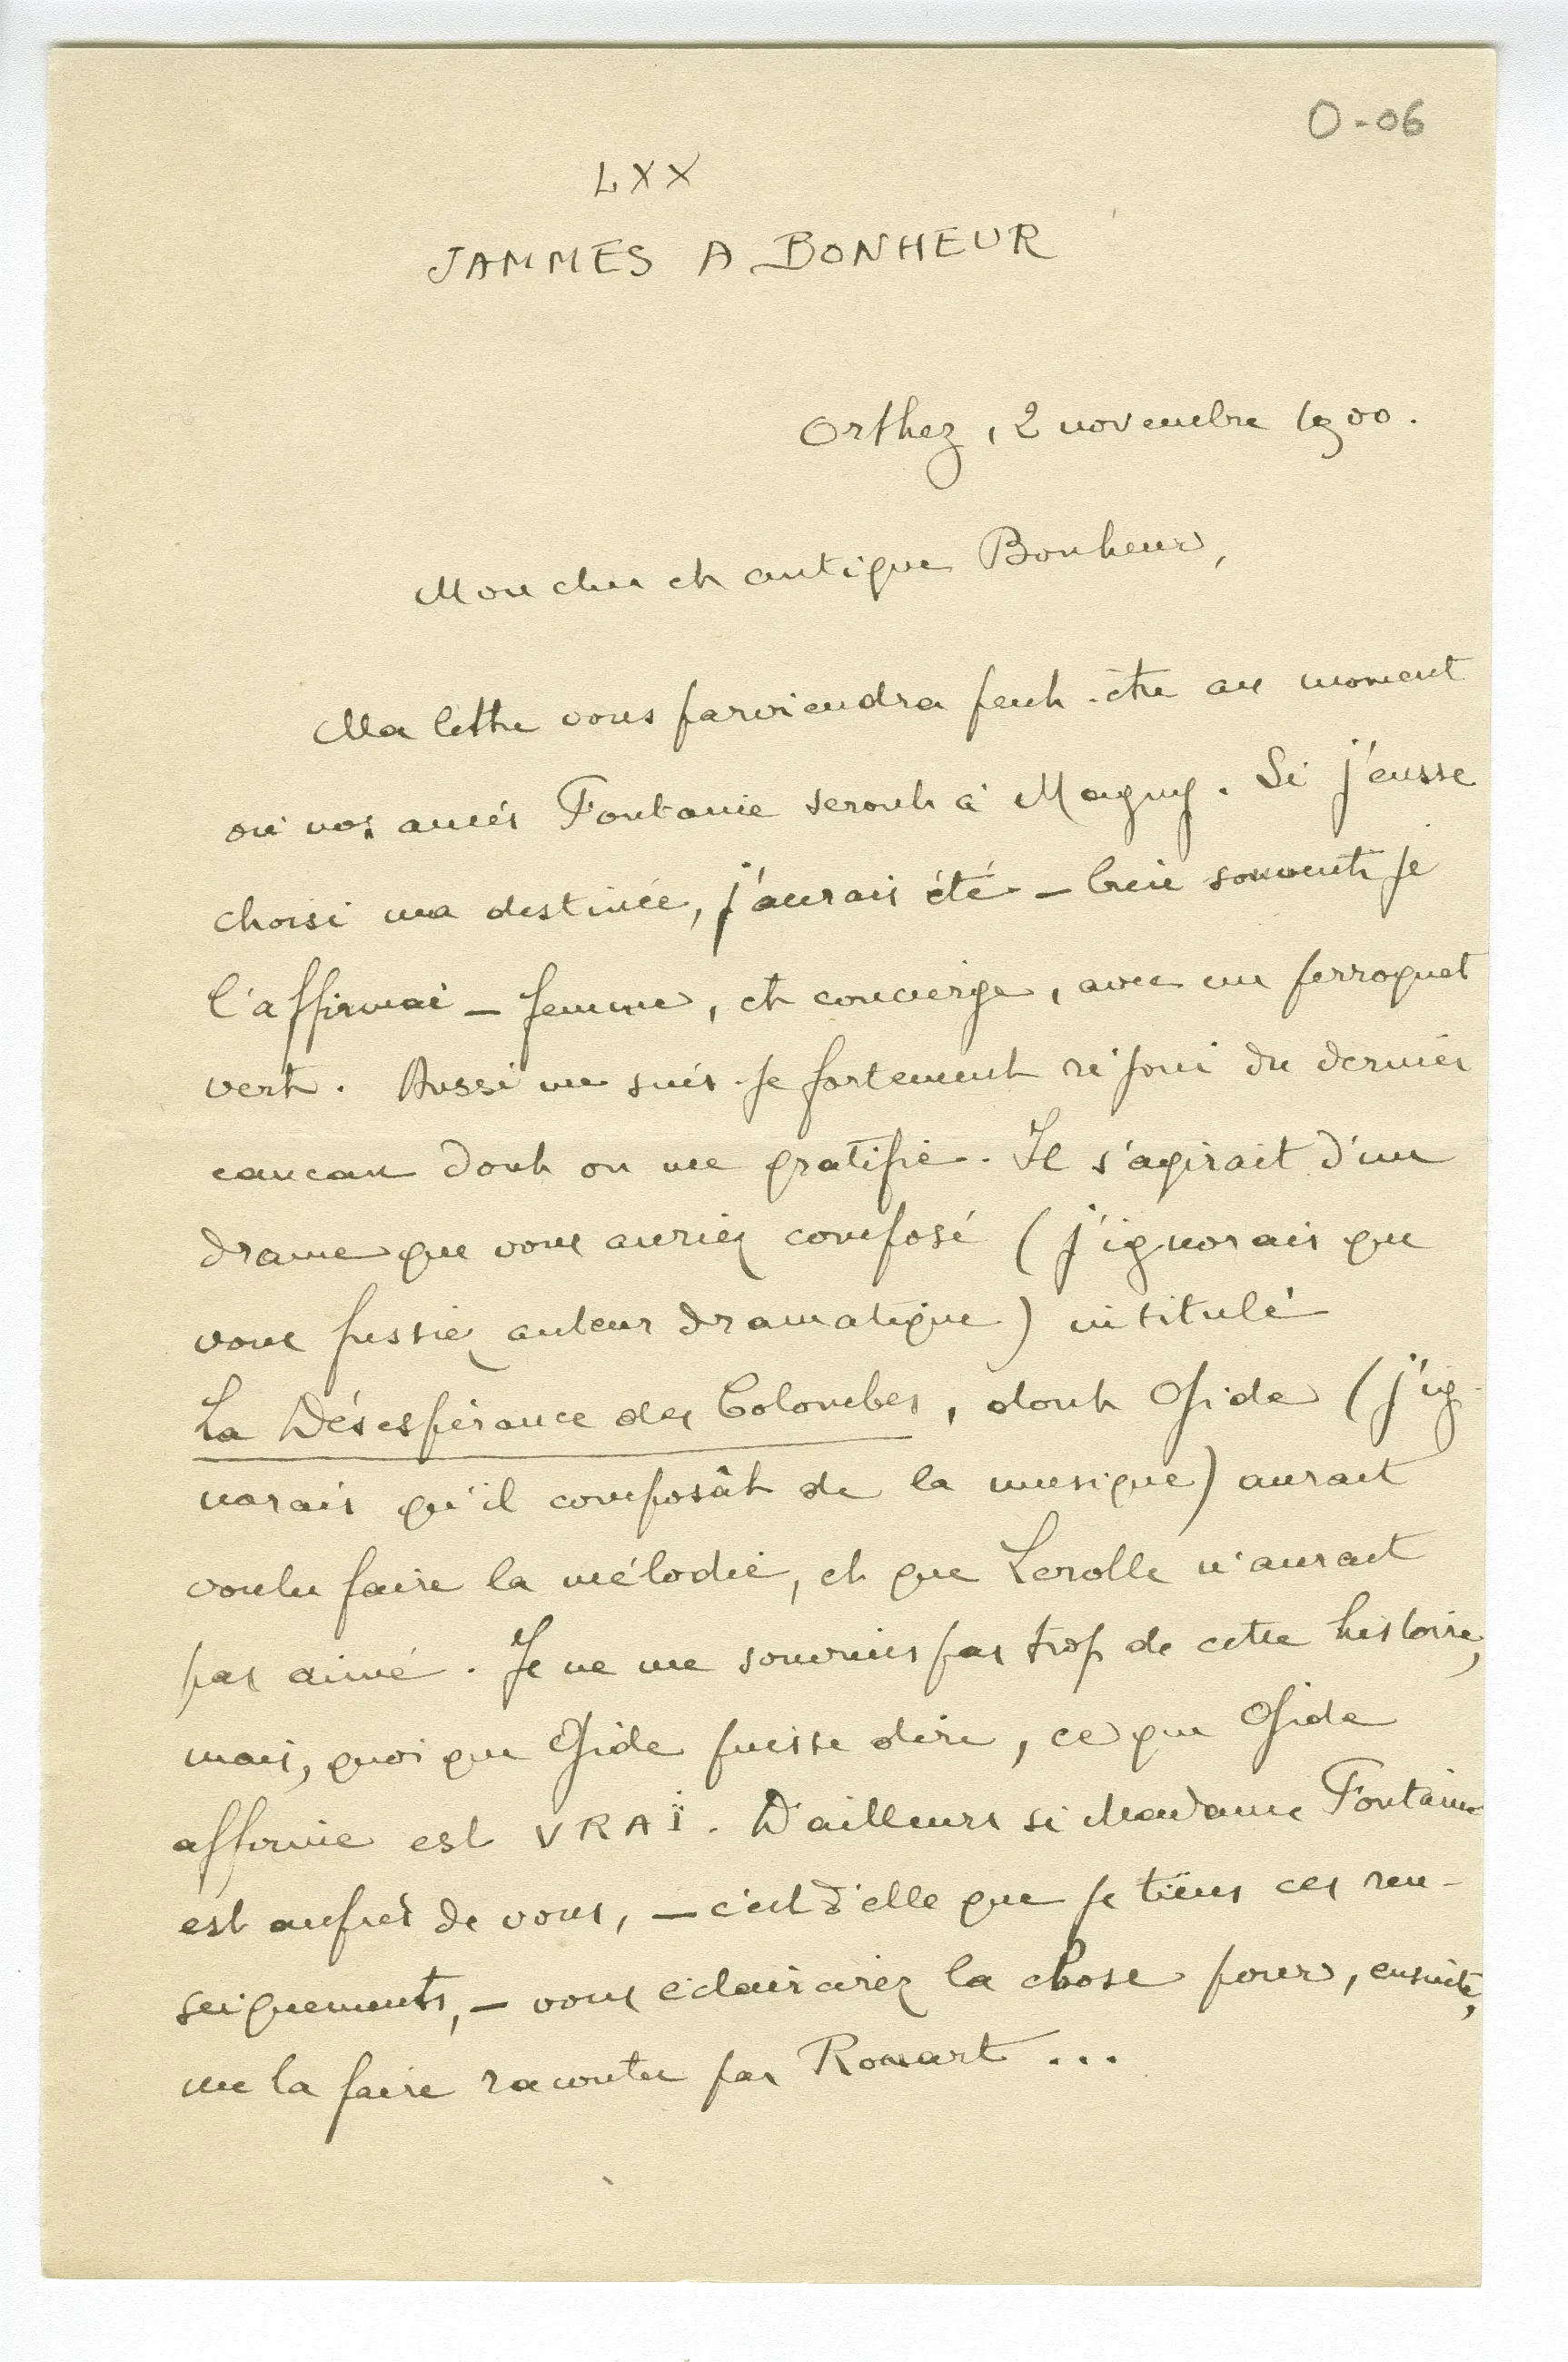 0-06
LXX
JAMMES A BONHEUR
Orthez, 2 novembre 1900.
Mon cher et antique Bonheur,
Ma lettre vous parviendra peut-être au moment
où nos amis Fontaine seront à Magny. Si j'eusse
choisi ma destinée, j'aurais été – bien souvent je
l'affirmai – femme, et concierge, avec un perroquet
vert. Aussi me suis-je fortement réjoui du dernier
cancan dont on me gratifie. Il s'agirait d'un
drame que vous auriez composé (j'ignorais que
vous fussiez auteur dramatique) intitulé
La Désespérance des Colombes, dont Gide (j'ig-
norais qu'il composât de la musique) aurait
voulu faire la mélodie, et que Lerolle n'aurait
pas aimé. Je ne me souviens pas trop de cette histoire,
mais, quoi que Gide puisse dire, ce que Gide
affirme est VRAÏ. D'ailleurs si Madame Fontaine
est auprès de vous, – c'est d'elle que je tiens ces ren-
seignements, – vous éclaircirez la chose pour, ensuite,
me la faire raconter par Rouart ...